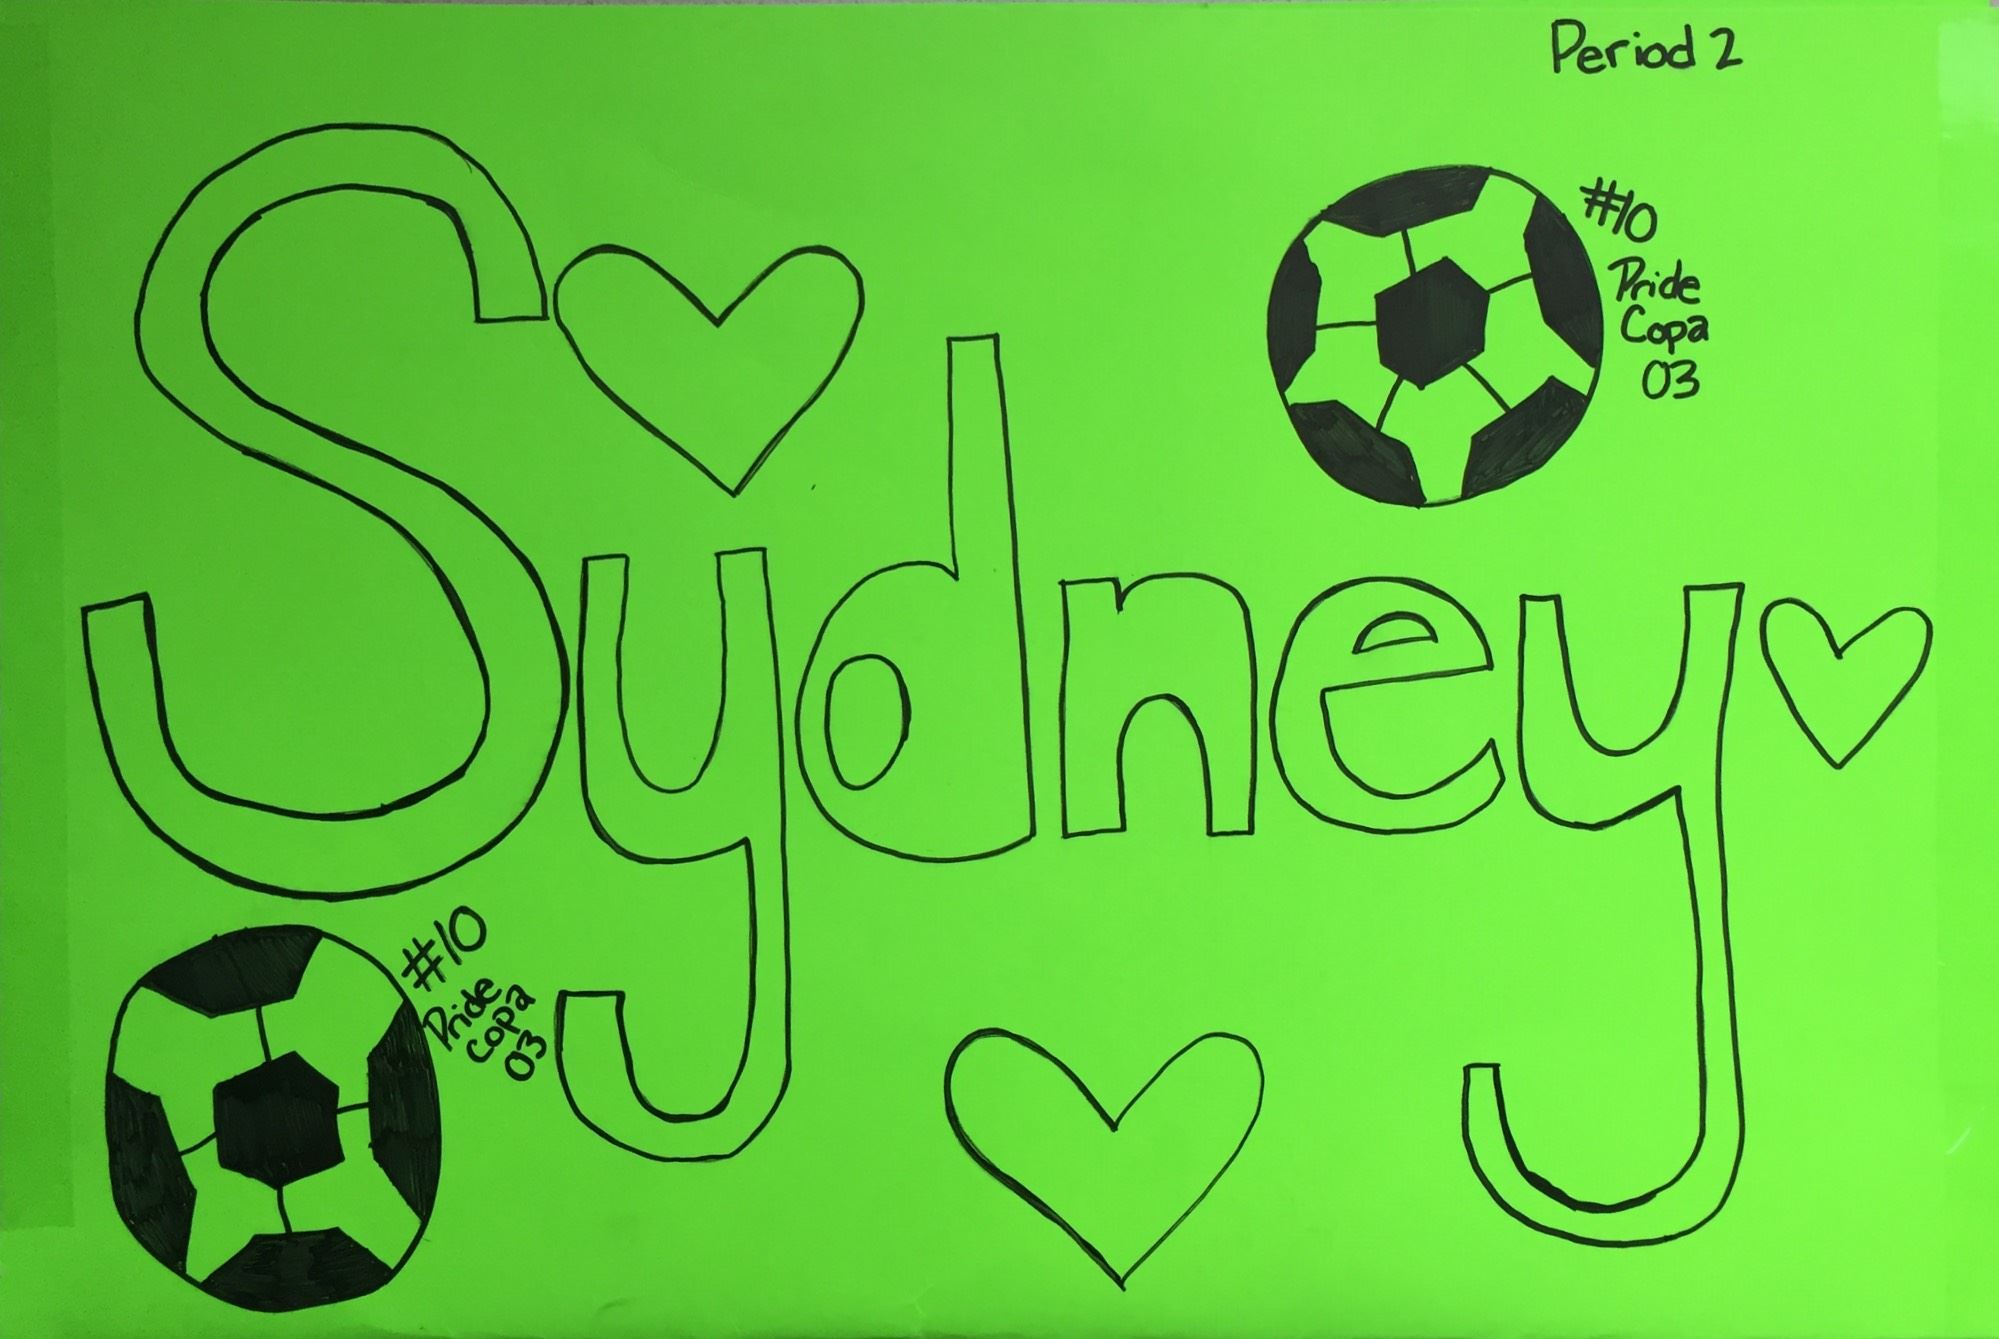 Period 2
#10
Pride
Copa
03
Sydney
#10
Pride
Copa
03